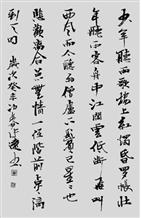 少年聽雨歌樓上紅燭昏羅帳壯
年聽雨客舟中江闊雲低斷雁叫
西風而今聽雨僧廬下鬢已星星也
悲歡離合總無情一任階前點滴
到天明 歲次癸未